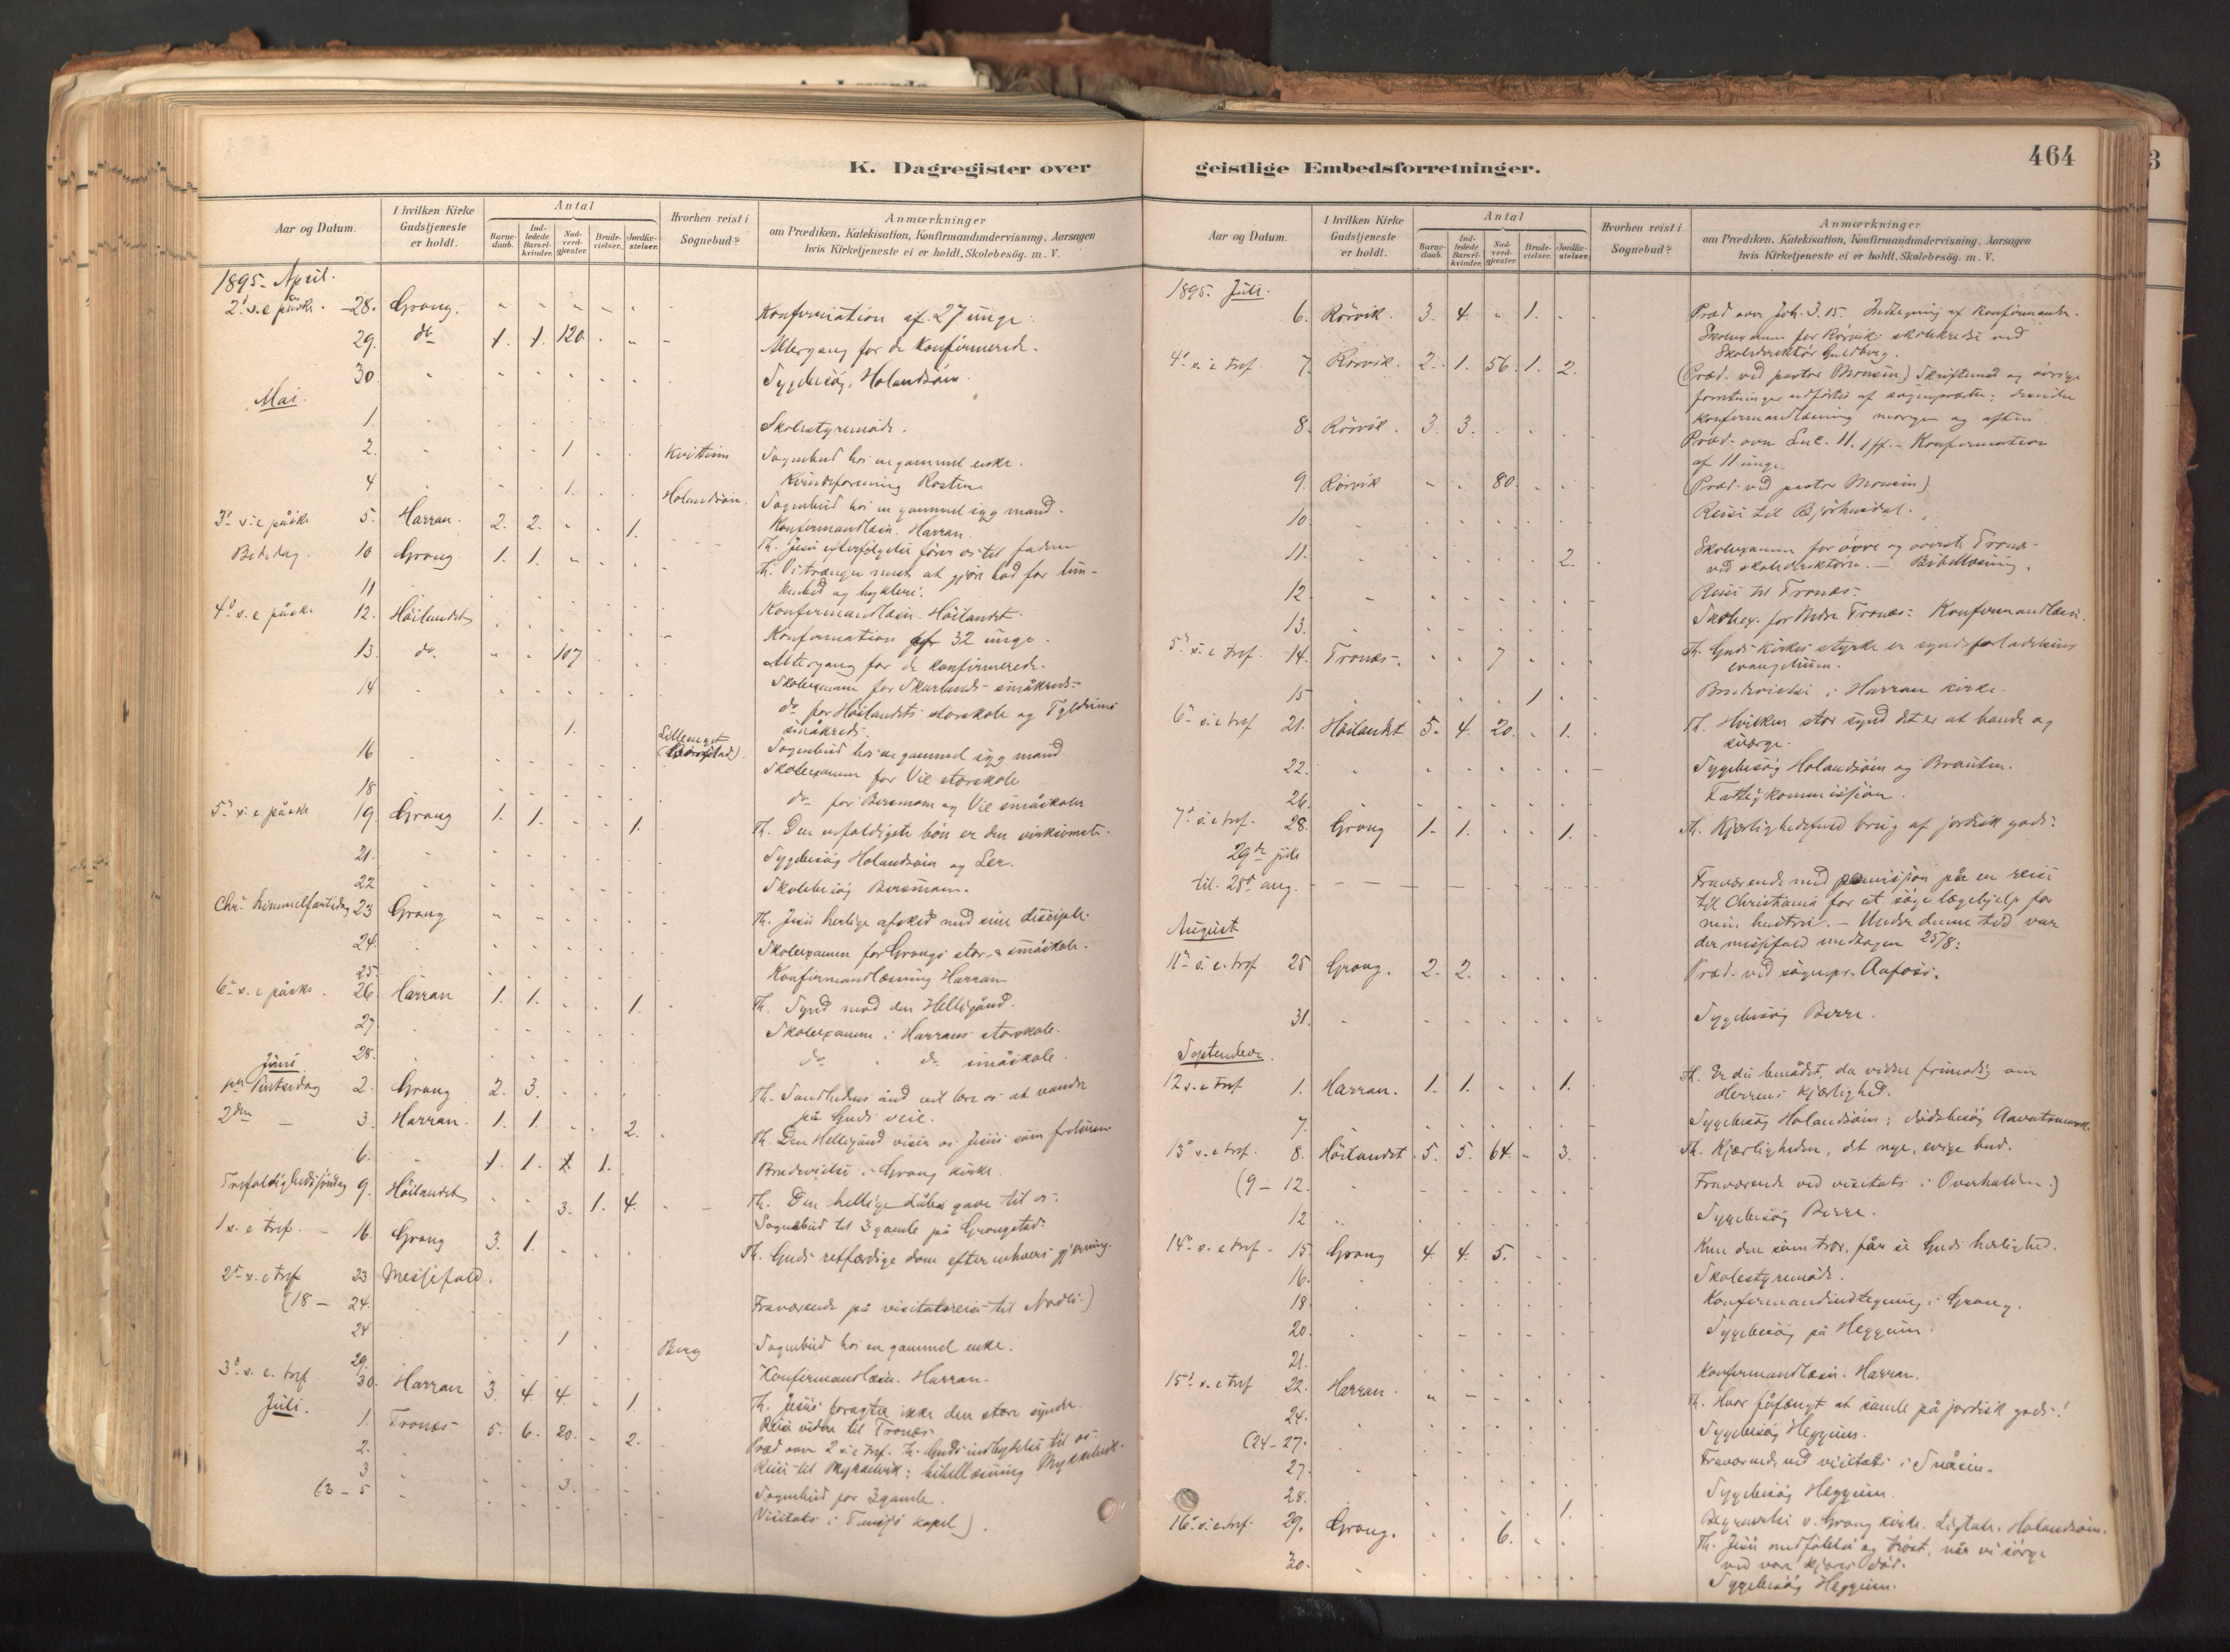 K. Dagregister over
Aar og Datum.
I hvilken Kirke Gudstjeneste er holdt.
Antal
Barne-daab.
Ind-ledede Barsel-kvinder.
Nad-verd-gjæster.
Brude-vielser.
Jordfæ-stelser.
Hvorhen reist i Sognebud?
Anmærkninger
om Prædiken, Katekisation, Konfirmandundervisning, Aarsagen
hvis Kirketjeneste ei er holdt, Skolebesøg. m. V.
1895. April.
2d s. e. påske. 28. Grong. Konfirmation af 27 unge.
29. do 1. 1. 120 Altergang for de konfirmerede.
30. Sygebesøg, Holandsøin.
Mai.
1. Skolestyremøde.
2. 1 Sognebud hos en gammel enke.
4 1. Holandsøin.
Sognebud hos en gammel syg mand.
3d s. e. påske 5. Harran. 2. 2. 1. Konfirmandlæsn. Harran
Th. Jesu efterfølgelse fører os til faderen
Bededag. 10 Grong 1. 1.
11 Konfirmandlæsn. Høilandet.
4d s. e. påske 12. Høilandet Konfirmation af 32 unge.
13. do. 107 Altergang for de konfirmerede.
14 Skoleexamen for Skarlands småkreds
do for Høilandets storskole og
småkreds.
1.
Sognebud hos en gammel syg mand
16 Skoleexamen for Vie storskole
18 do for Bergsmoen og Vie småskoler
5d s. e. påske 19. Grong 1. 1. 1. Th. Den enfoldigste bøn er den virksomste.
21. Sygebesøg Holandsøin og Ler.
22 Skolebesøg Bergsmoen.
Chr. himmelfartsdag 23 Grong Th. Jesu herlige afsked med sine disciple.
24. Skoleexamen for Grongs stor- & småskole.
25. Konfirmandlæsning Harran
6d s. e. påske. 26. Harran 1. 1. 1. Th. Synd mod den Helligånd.
27 Skoleexamen i Harrans storskole.
28. do do småskole.
Juni
1ste Pintsedag 2. Grong 2. 3. Th. Sandhedens ånd vil lære os at vandre
på Guds veie.
2den — 3. Harran. 1. 1. 2. Th. Den Helligånd viser os Jesus som frelseren
6. 1. 1. 1. 1. Brudevielse i Grong kirke.
Trefoldighedssøndag 9. Høilandet 3. 1. 4. Th. Den hellige dåbs gave til os.
Sognebud til 3 gamle på Grongstad.
1 s. e. tref. 16. Grong 3. 1. Th. Guds retfærdige dom efter enhvers gjerning.
2d s. e. tref 23 Messefald.
(18 — 24. Fraværende på visitatsreise til Nordli.)
24 1 Berg Sognebud hos en gammel enke.
29. Konfirmandlæsn. Harran.
3d s. e. tref 30. Harran 3. 4. 4. 1. Th. Jesus foragter ikke den store synder.
Juli.
Reise videre til Tronæs
1. Tronæs 5. 6. 20. 2. Præd over 2 s. e. tref. Th. Guds indbydelse til os.
2. Reise til Mykkelvik: bibellæsning Mykkelvik.
3 3. Sognebud for 3 gamle.
(3 — 5 Visitats i Tunsjø kapel).
geistlige Embedsforretninger.
464
Aar og Datum.
I hvilken Kirke Gudstjeneste er holdt.
Antal
Barne-daab.
Ind-ledede Barsel-kvinder.
Nad-verd-gjæster.
Brude-vielser.
Jordfæ-stelser.
Hvorhen reist i Sognebud?
Anmærkninger
om Prædiken, Katekisation, Konfirmandundervisning, Aarsagen
hvis Kirketjeneste ei er holdt, Skolebesøg. m. V.
1895. Juli.
6. Rørvik. 3. 4. 1. Præd over Joh. 3. 15. Indtegning af konfirmander.
Skoleexamen for Rørvik skolekreds ved
Skoledirektør Guldberg.
4d s. e. tref. 7. Rørvik. 2. 1. 56. 1. 2. (Præd. ved pastor Monsen) Skriftemål og øvrige
forretninger udførtes af sognepresten; desuden
konfirmandlæsning morgen og aften
8. Rørvik. 3. 3. Præd. over Luc. 11. 1 ff. — Konfirmation
af 11 unge.
9. Rørvik 80. (Præd. ved pastor Monsen)
10 Reise til Bjørhusdal.
11. 2. Skoleexamen for øvre og øverste Tronæs
ved skoledirektøren. — Bibellæsning.
12 Reise til Tronæs.
13. Skoleex. for Nedre Tronæs: Konfirmandlæsn.
5d s. e. tref. 14. Tronæs. 7 Th. Guds kirkes styrke er syndsforladelsens
evangelium.
15 1 Brudevielse i Harran kirke.
6d s. e. tref 21. Høilandet 5. 4. 20. 1. Th. Hvilken stor synd det er at bande og
sværge.
22. Sygebesøg Holandsøin og Brauten.
26. Fattigkommission.
7d s. e. tref. 28. Grong 1. 1. 1. Th. Kjærlighedsfuld brug af jordisk gods.
29de juli
til 28d aug. Fraværende med permission på en reise
til Christiania for at søge lægehjelp for
min hustru. — Under denne tid var
der messefald undtagen 25/8:
August
11d s. e. tref 25 Grong. 2. 2. Præd. ved sognepr. Aafoss.
31. Sygebesøg Berre.
September.
12 s. e. tref 1. Harran. 1. 1. 1. Th. Er du benådet, da vidne frimodig om
Herrens kjærlighed.
7. Sygebesøg Holandsøin;
13d s. e. tref. 8. Høilandet 5. 5. 64. 3. Th. Kjærligheden, det nye, evige bud.
(9 — 12. Fraværende ved visitats i Overhalden.)
12 Sygebesøg Berre.
14d s. e. tref. 15. Grong 4. 4. 5. Kun den som tror, får se Guds herlighed.
16. Skolestyremøde.
18. Konfirmandindtegning i Grong.
20. Sygebesøg på Heggum.
21. Konfirmandlæsn. Harran.
15d s. e. tref 22. Harran. Th. Hvor fåfængt at samle på jordisk gods!
24. Sygebesøg Heggum.
(24—27. Fraværende ved visitats i Snåsen.
27. Sygebesøg Heggum.
28. 1. Begravelse v. Grong kirke. Ligtale. Holandsøin.
16d s. e. tref. 29. Grong. 6. Th. Jesu medfølelse og trøst, når vi sørge
ved vore kjæres død.
30. Sygebesøg Heggum.